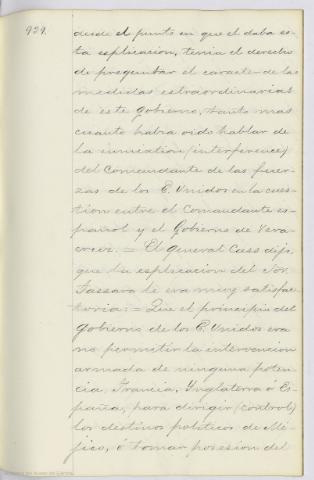 929.
desde el punto en que el daba es-
ta esplicacion, tenia el derecho
de preguntar el caracter de las
medidas estraordinarias
de este Gobierno, tanto mas
cuanto habia oido hablar de
la inmixtion (interference)
del Comandante de las fuer-
zas de los E. Unidos en la cues-
tion entre el Comandante es-
pañol y el Gobierno de Vera-
cruz. = El General Cass dijo
que la esplicacion del Sor.
Tassara le era muy satisfac-
toria. = Que el principio del
Gobierno de los E. Unidos era
no permitir la intervencion
armada de ninguna poten-
cia, Francia, Ynglaterra ó Es-
paña, para dirigir (control)
los destinos politicos de Mé-
jico, ó tomar posesion del